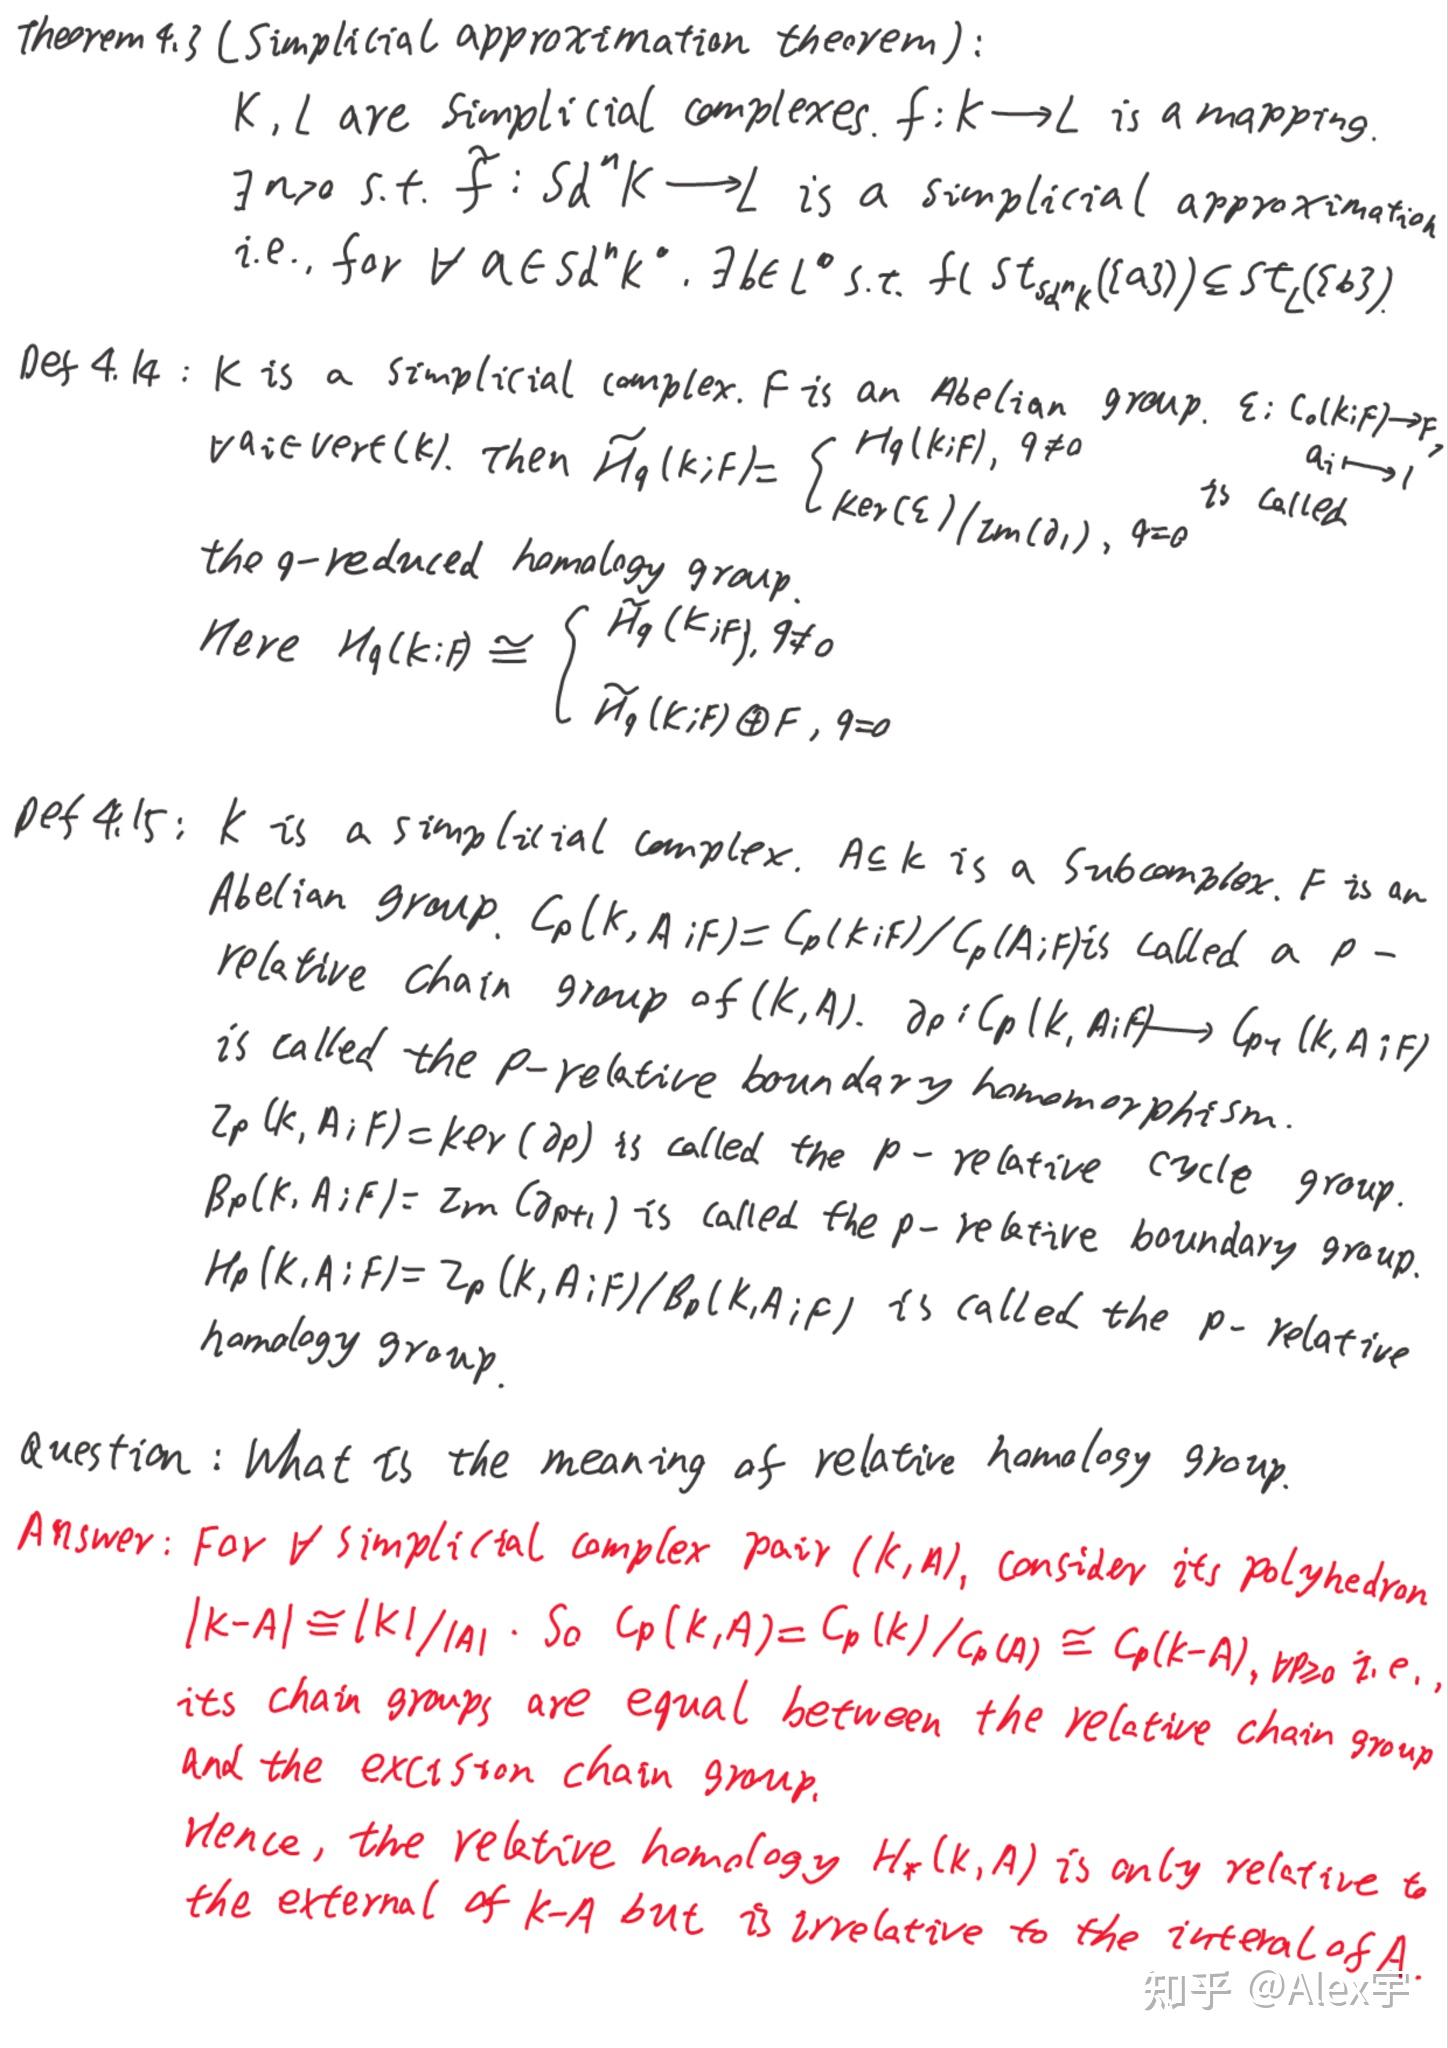 Theorem 4.3 (Simplicial approximation theorem):
K, L are simplicial complexes. f: K⟶L is a mapping.
∃ n>0 s.t. f̃ : SdⁿK⟶L is a simplicial approximation
i.e., for ∀ a∈SdⁿK⁰, ∃b∈L⁰ s.t. f(St_{SdⁿK}({a}))⊆St_L({b}).
Def 4.14: K is a simplicial complex. F is an Abelian group. ε: C₀(K;F)→F,
aᵢ⟼1
∀aᵢ∈vert(K). Then H̃_q(K;F)= { H_q(K;F), q≠0
Ker(ε)/Im(∂₁), q=0 is called
the q-reduced homology group.
Here H_q(K;F) ≅ { H̃_q(K;F), q≠0
H̃_q(K;F)⊕F, q=0
Def 4.15: K is a simplicial complex. A⊆K is a subcomplex. F is an
Abelian group. C_p(K,A;F)=C_p(K;F)/C_p(A;F) is called a p-
relative chain group of (K,A). ∂_p: C_p(K,A;F)⟶C_{p-1}(K,A;F)
is called the p-relative boundary homomorphism.
Z_p(K,A;F)=Ker(∂_p) is called the p-relative cycle group.
B_p(K,A;F)=Im(∂_{p+1}) is called the p-relative boundary group.
H_p(K,A;F)=Z_p(K,A;F)/B_p(K,A;F) is called the p-relative
homology group.
Question: What is the meaning of relative homology group.
Answer: For ∀ simplicial complex pair (K,A), consider its polyhedron
|K-A|≅|K|/|A|. So C_p(K,A)=C_p(K)/C_p(A)≅C_p(K-A), ∀p≥0 i.e.,
its chain groups are equal between the relative chain group
and the excision chain group.
Hence, the relative homology H_*(K,A) is only relative to
the external of K-A but is irrelative to the interal of A.
知乎 @Alex宇